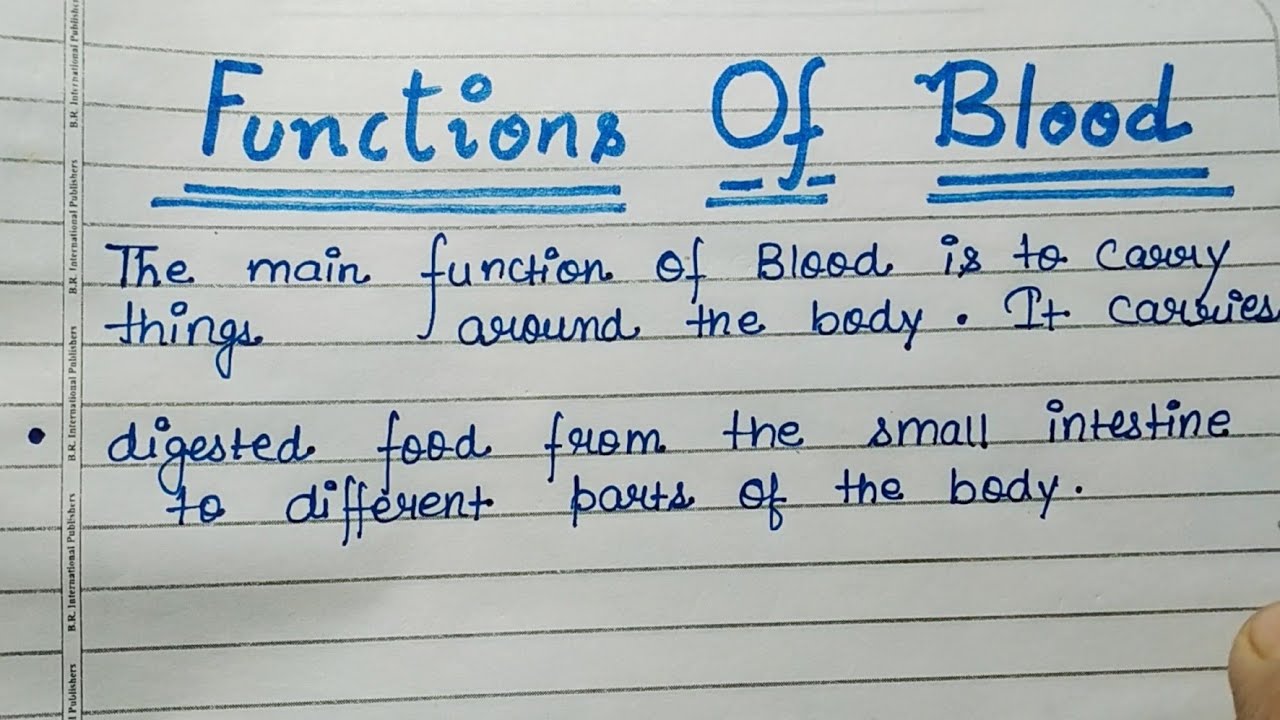 Functions Of Blood
The main function of Blood is to carry
things around the body. It carries
• digested food from the small intestine
to different parts of the body.
B.R. International Publishers
B.R. International Publishers
B.R. International Publishers
B.R. International Publishers
l Publishers